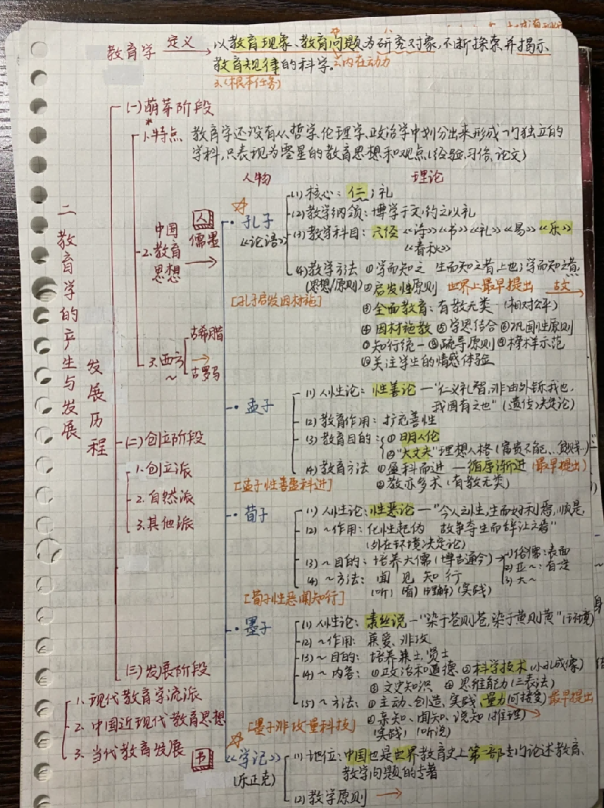 教育学 定义 以教育现象、教育问题为研究对象,不断探索并揭示
教育规律的科学。 内在动力
(根本任务)
二、教育学的产生与发展
发展历程
(一)萌芽阶段
1.特点 教育学还没有从哲学、伦理学、政治学中划分出来形成一门独立的
学科,只表现为零星的教育思想和观点(经验、习俗、论文)
人物 理论
2.中国教育思想
人
儒墨
3.西方~
古希腊
古罗马
(二)创立阶段
1.创立派
2.自然派
3.其他派
(三)发展阶段
1.现代教育学流派
2.中国近现代教育思想
3.当代教育发展
孔子
《论语》
(1)核心:仁;礼
(2)教学纲领:博学于文,约之以礼
(3)教学科目:六经《诗》《书》《礼》《易》《乐》
《春秋》
(4)教学方法 ①学而知之 生而知之者上也;学而知之者
(思想/原则) ②启发性原则 世界上最早提出
③全面教育:有教无类(相对公平)
④因材施教 ⑤学思结合 ⑥巩固性原则
⑦知行统一 ⑧疏导原则 ⑨榜样示范
⑩关注学生的情感体验
[孔子启发因材施]
孟子
(1)人性论:性善论—“仁义礼智,非由外铄我也,
我固有之也”(遗传决定论)
(2)教育作用:扩充善性
(3)教育目的:①明人伦
②“大丈夫”理想人格(富贵不能
(4)教育方法 ①盈科而进—循序渐进(最早提出)
②教亦多术(有教无类)
[孟子性善盈科进]
荀子
(1)人性论:性恶论—“今人之性,生而好利焉,顺是,
故争夺生而辞让亡焉”
(2)~作用:化性起伪
(外在环境决定论)
(3)~目的:培养大儒(博古通今) 1)俗儒:表面
2)雅~:
3)大~
(4)~方法:闻 见 知 行
(听)(看)(理解)(实践)
[荀子性恶闻知行]
墨子
(1)人性论:素丝说—“染于苍则苍,染于黄则黄”(环境)
(2)~作用:兼爱、非攻
(3)~目的:培养兼士,贤士
(4)~内容:①政治和道德 ②科学技术 小孔成像
③文史知识 ④思维能力(三表法)
(5)~方法:①主动、创造、实践、量力(可接受)最早提出
②亲知、闻知、说知(推理)
(实践)(听说)
[墨子非攻量科技]
书
《学记》
(乐正克)
(1)地位:中国也是世界教育史上第一部专门论述教育、
教学问题的专著
(2)教学原则